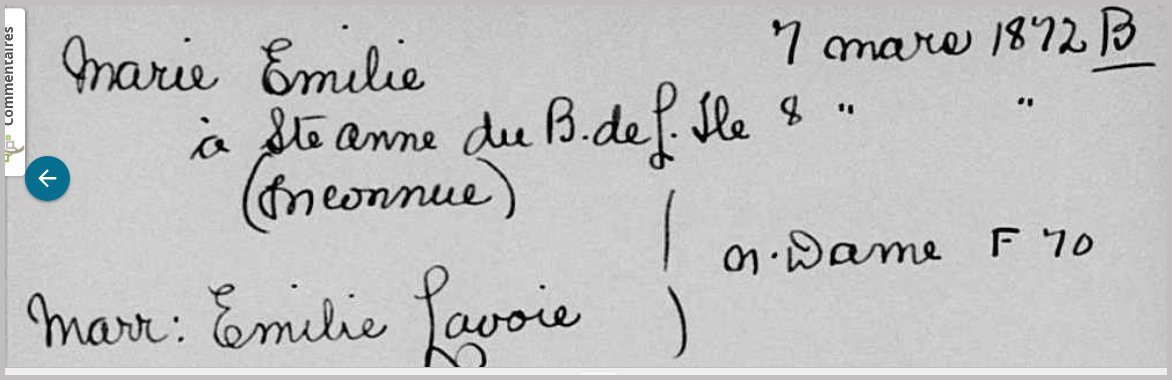 Commentaires
Marie Emilie 7 mars 1872 B
à Ste anne du B. de l. Ile 8 " "
(Inconnue)
n. Dame F 70
Marr: Emilie Lavoie )